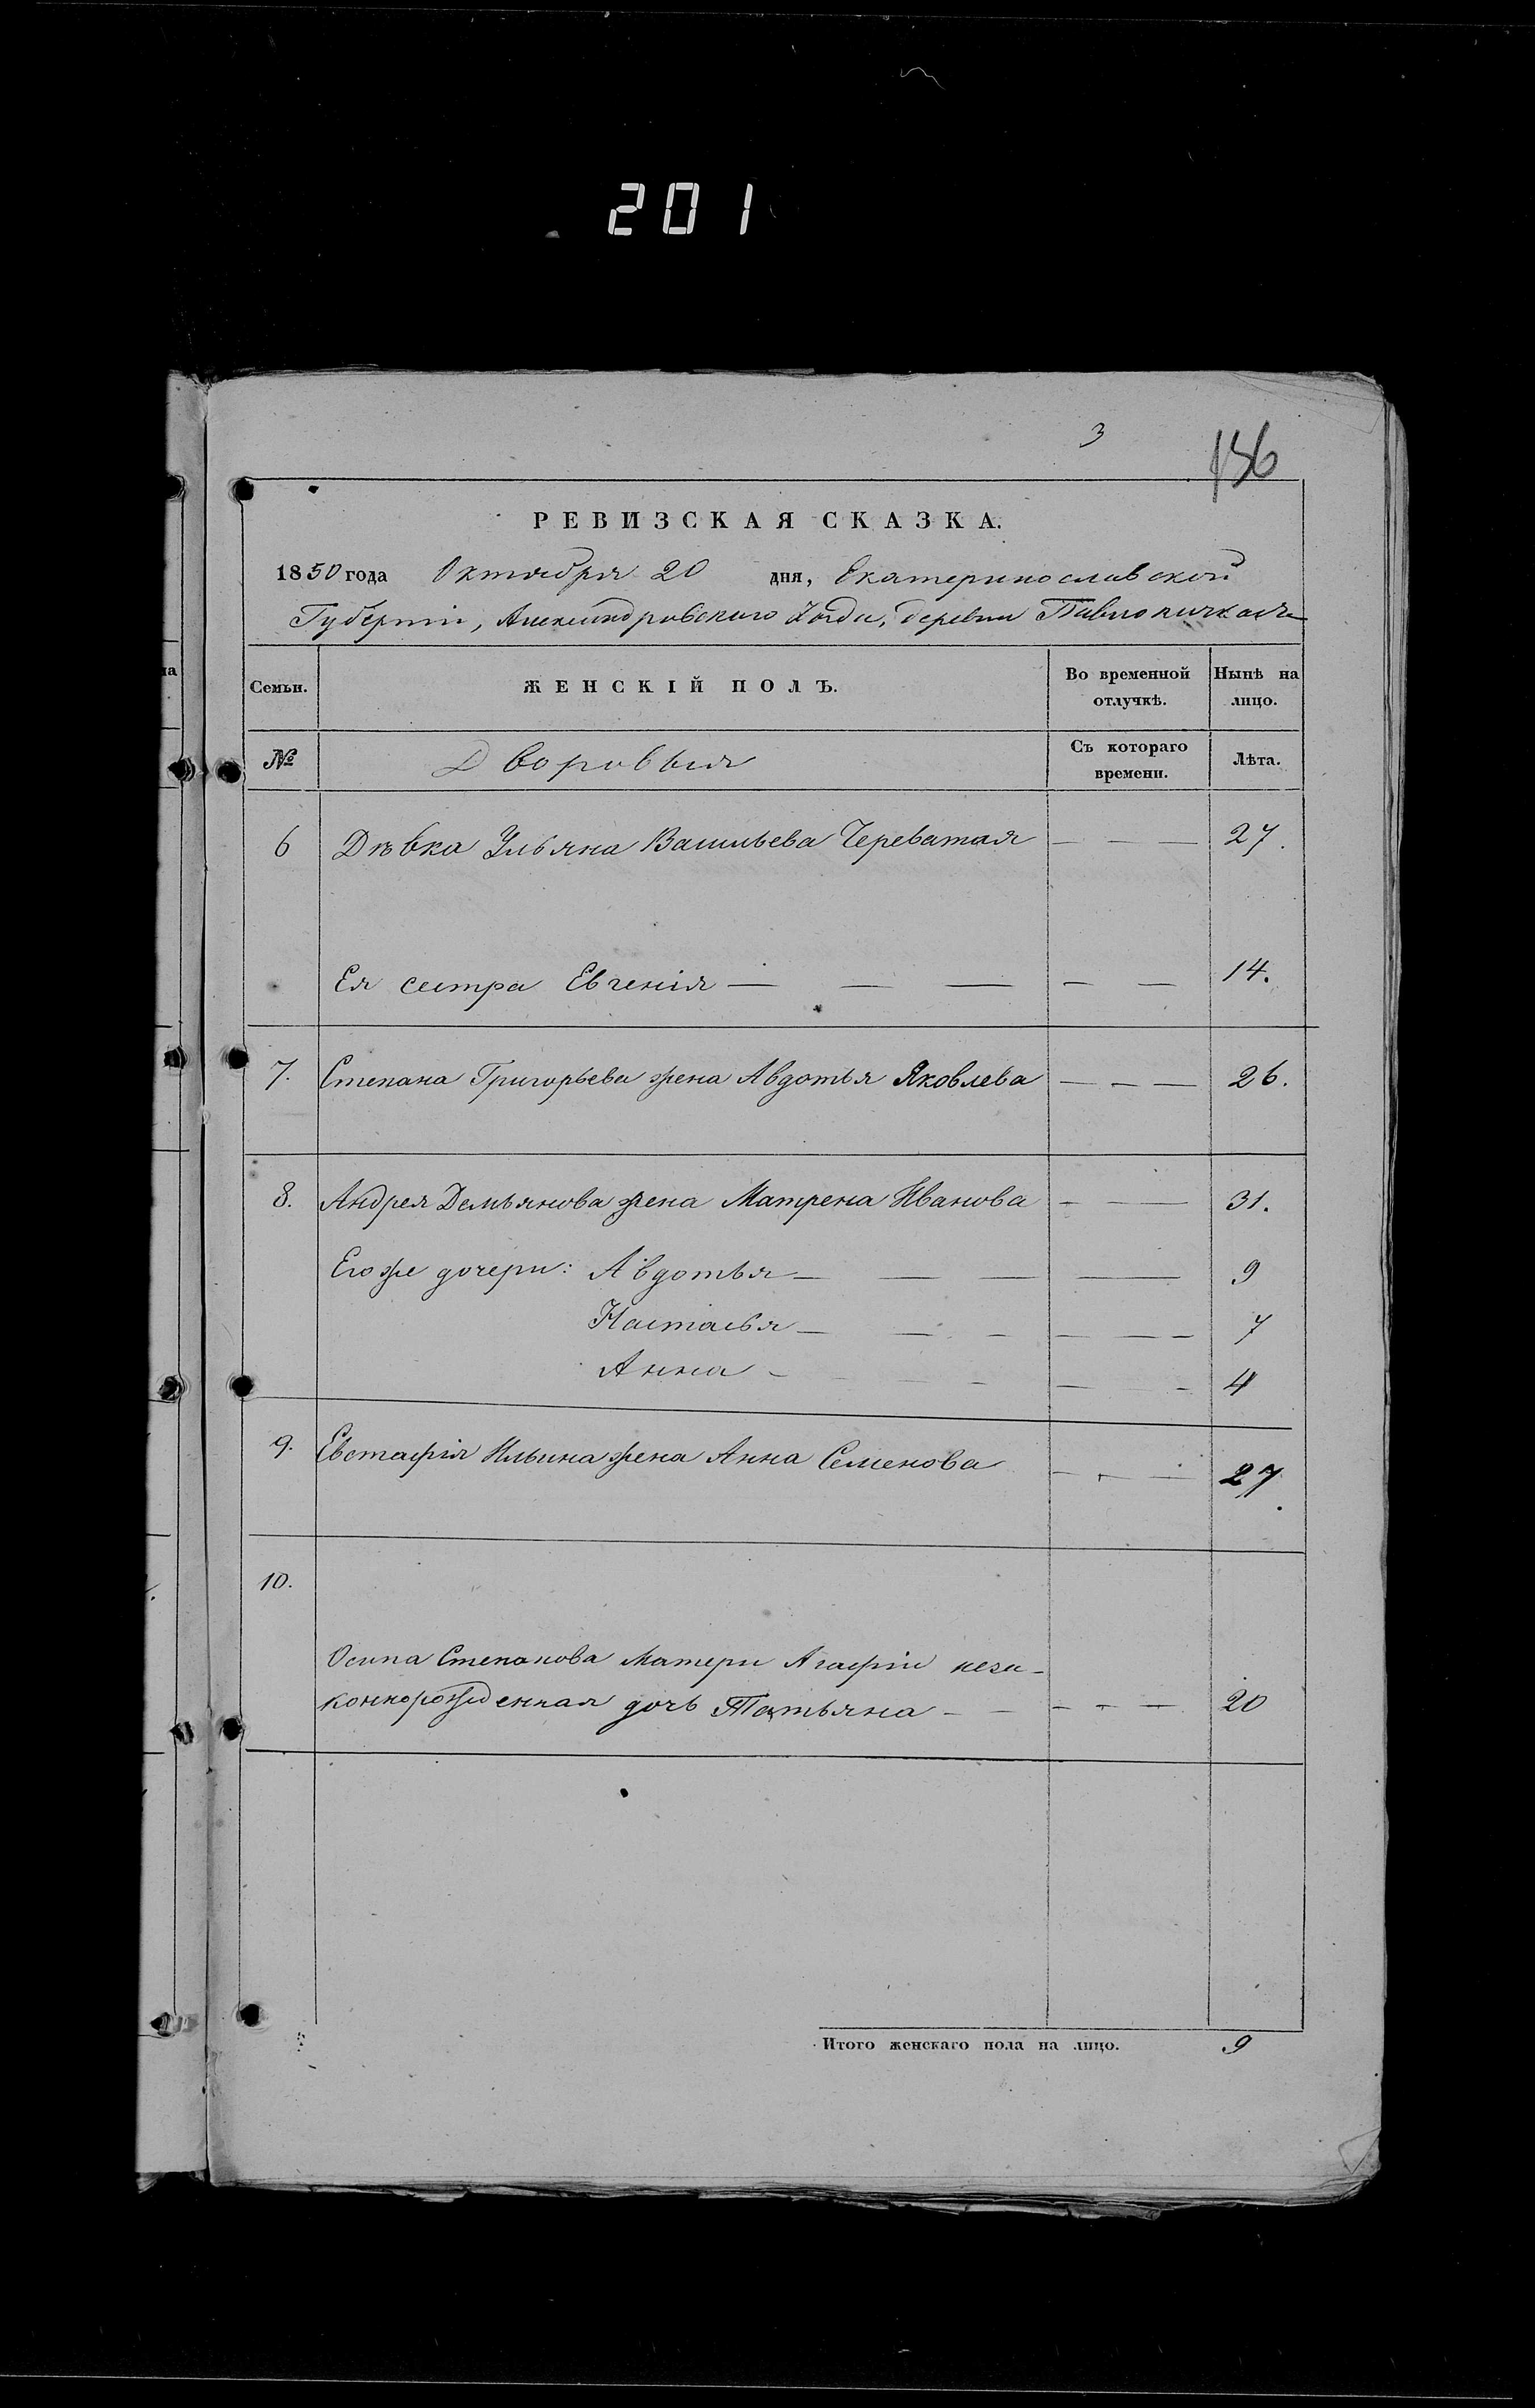 201
3
136
РЕВИЗСКАЯ СКАЗКА.
1850 года Октября 20 дня, Екатеринославской
Губерніи, Александровскаго Уѣзда, деревни Павлокичкасъ
Семьи. ЖЕНСКІЙ ПОЛЪ. Во временной отлучкѣ. Нынѣ на лицо.
№ Дворовыя Съ котораго времени. Лѣта.
6 Дѣвка Ульяна Васильева Череватая — — — 27.
Ея сестра Евгенія — — — — — 14.
7. Степана Григорьева жена Авдотья Яковлева — — — 26.
8. Андрея Демьянова жена Матрена Иванова — — 31.
Его же дочери: Авдотья — — — — 9
Настасья — — — — — — 7
Анна — — — — — 4
9. Евстафія Ильина жена Анна Семенова — — — 27.
10.
Осипа Степанова матери Агафіи неза-
коннорожденная дочь Татьяна — — — — — 20
Итого женскаго пола на лицо. 9